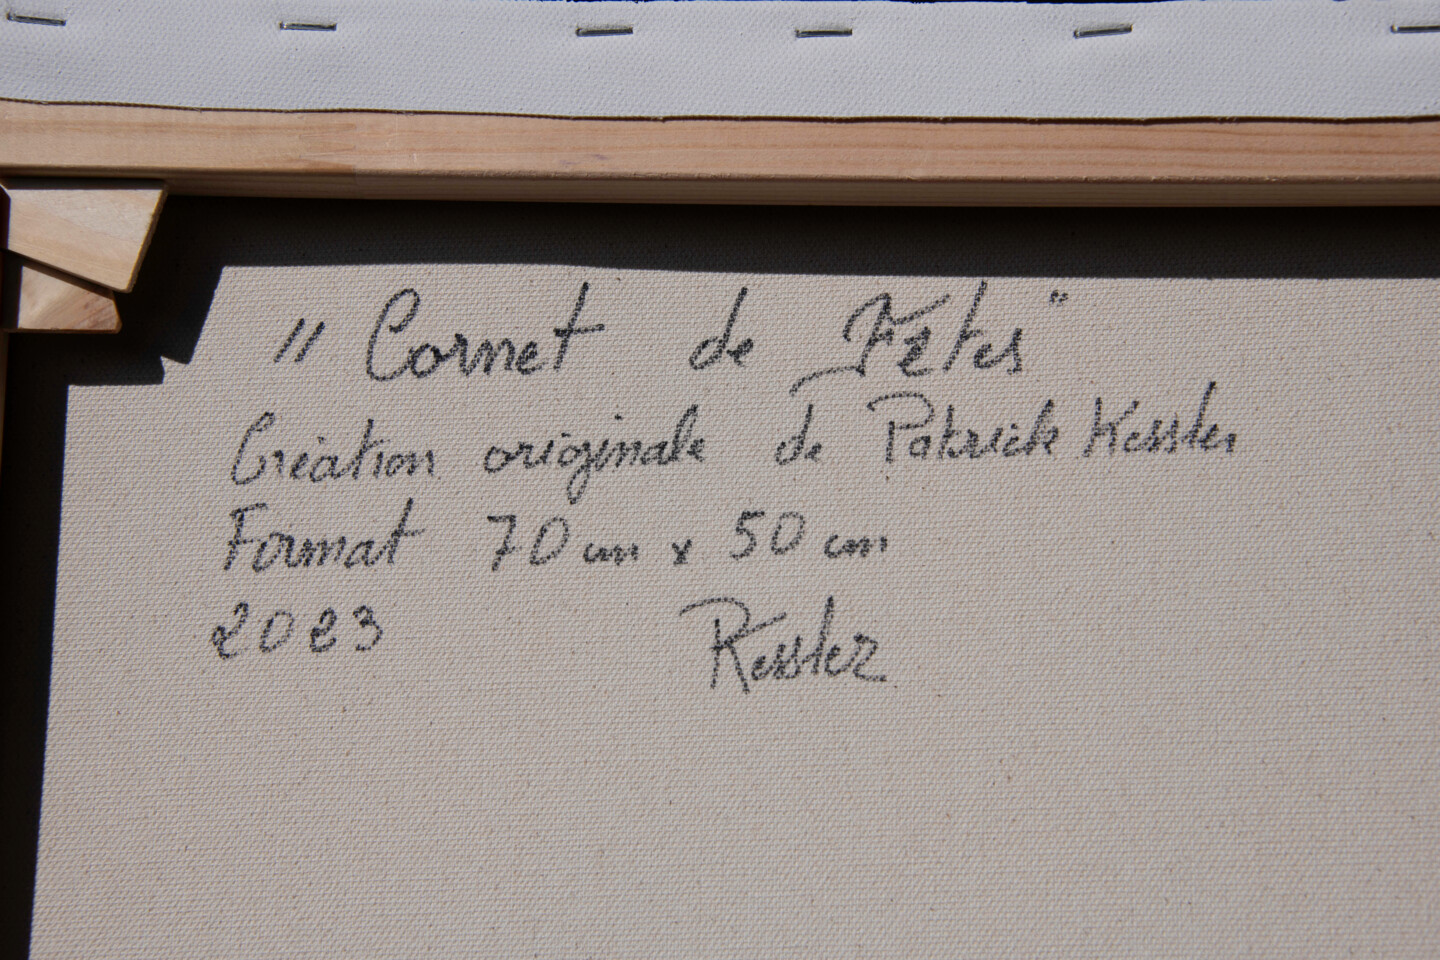 "Cornet de Fêtes"
Création originale de Patrick Kessler
Format 70 cm x 50 cm
2023 Kessler